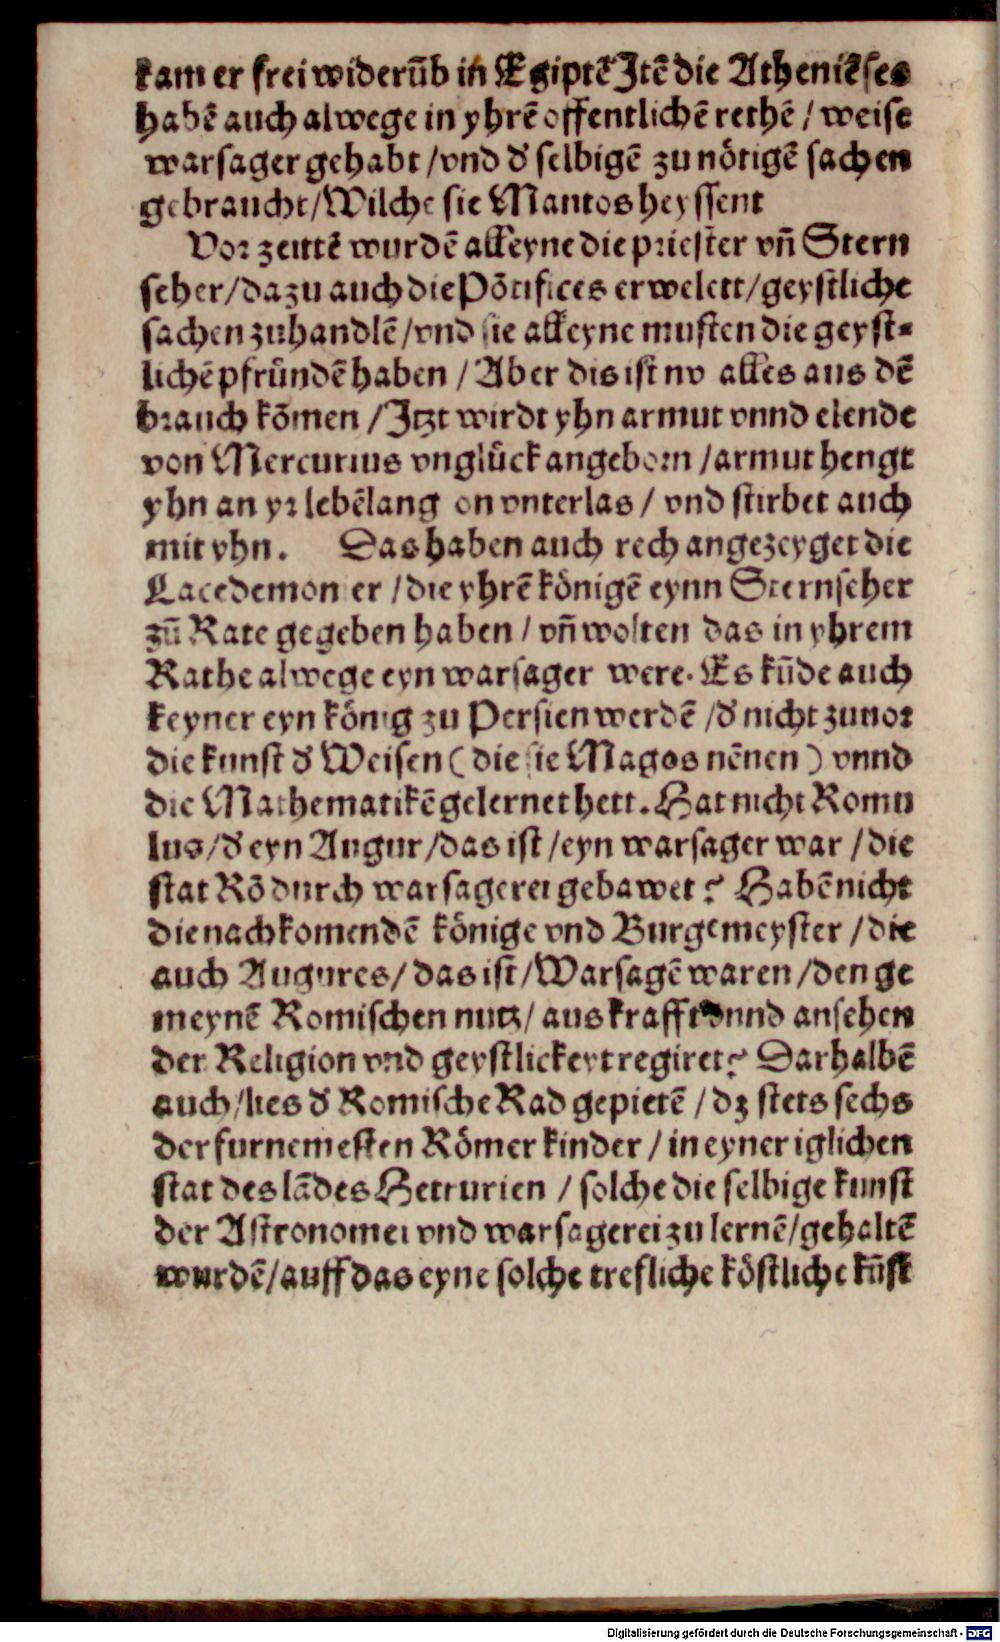 kam er frei widerūb in Egiptē Jtē die Atheniēses
habē auch alwege in yhrē offentlichē rethē / weise
warsager gehabt /vnd d' selbigē zu nötigē sachen
gebraucht/Wilche sie Mantos heyssent
Vor zeittē wurdē alleyne die priester vn̄ Stern
seher/dazu auch die Pōtifices erwelett/geystliche
sachen zuhandlē/vnd sie alleyne musten die geyst⸗
lichē pfründē haben / Aber dis ist nv alles aus dē
brauch kōmen /Jtzt wirdt yhn armut vnnd elende
von Mercurius vnglück angeborn /armut hengt
yhn an yr lebēlang on vnterlas / vnd stirbet auch
mit yhn. Das haben auch rech angezeyget die
Lacedemon er /die yhrē königē eynn Sternseher
zū Rate gegeben haben / vn̄ wolten das in yhrem
Rathe alwege eyn warsager were. Es kūde auch
keyner eyn könig zu Persien werdē /d' nicht zuuor
die kunst d' Weisen ( die sie Magos nēnen ) vnnd
die Mathematikē gelernet hett. Hat nicht Romu
lus/d' eyn Augur/das ist /eyn warsager war /die
stat Rō durch warsagerei gebawet? Habē nicht
die nachkomendē könige vnd Burgemeyster /die
auch Augures/das ist/Warsagē waren/den ge
meynē Romischen nutz/ aus krafft vnnd ansehen
der Religion vnd geystlickeyt regiret? Darhalbē
auch/lies d' Romische Rad gepietē / dz stets sechs
der furnemesten Römer kinder / in eyner iglichen
stat des lādes Hetrurien / solche die selbige kunst
der Astronomei vnd warsagerei zu lernē/gehaltē
wurdē/auff das eyne solche trefliche köstliche kūst
Digitalisierung gefördert durch die Deutsche Forschungsgemeinschaft - DFG